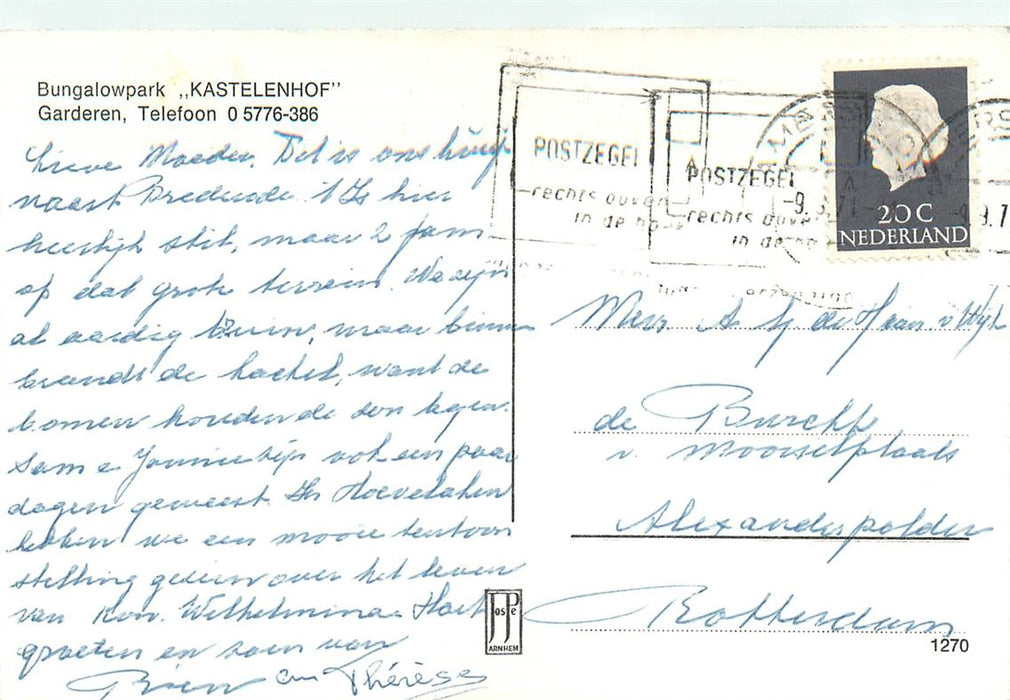 Bungalowpark ,,KASTELENHOF''
Garderen, Telefoon 0 5776-386
Lieve Moeder, Dit is ons huisje
naast Brederode. 't Is hier
heerlijk stil, maar 2 fam
op dat grote terrein. We zijn
al aardig bruin, maar binnen
brandt de kachel, want de
bomen houden de zon tegen.
Sam en Jannie zijn ook een paar
dagen geweest. In Hoevelaken
hebben we een mooie tentoon
stelling gezien over het leven
van Kon. Wilhelmina. Hart
groeten en zoen van
Rien en Thérèse
POSTZEGEL
rechts boven
in de hoek
POSTZEGEL
rechts boven
in de hoek
20 C
NEDERLAND
Mevr A. de Haan v Wijk
de Burcht
Alexanderpolder
Rotterdam
JosPe
ARNHEM
1270